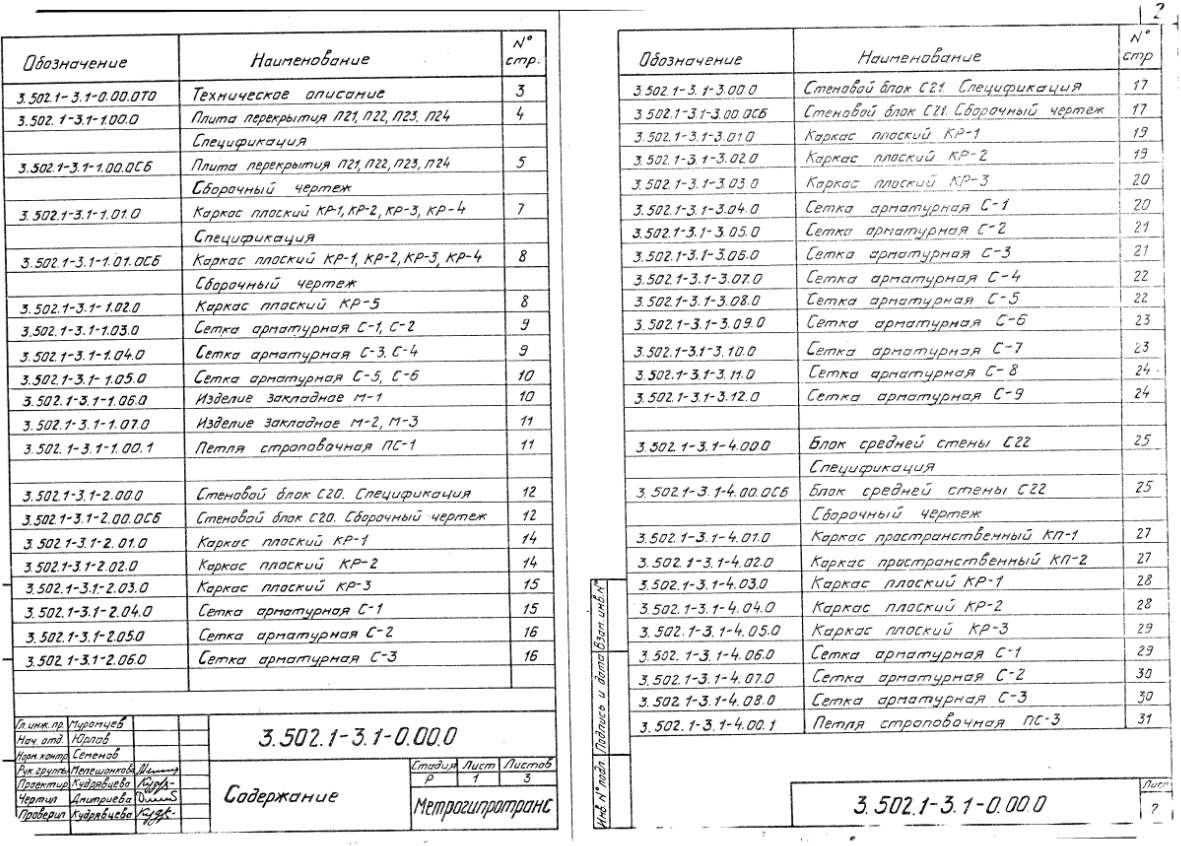 2
Обозначение Наименование № стр.
3.502.1-3.1-0.00.0ТО Техническое описание 3
3.502.1-3.1-1.00.0 Плита перекрытия П21, П22, П23, П24 4
Спецификация
3.502.1-3.1-1.00.0СБ Плита перекрытия П21, П22, П23, П24 5
Сборочный чертеж
3.502.1-3.1-1.01.0 Каркас плоский КР-1, КР-2, КР-3, КР-4 7
Спецификация
3.502.1-3.1-1.01.0СБ Каркас плоский КР-1, КР-2, КР-3, КР-4 8
Сборочный чертеж
3.502.1-3.1-1.02.0 Каркас плоский КР-5 8
3.502.1-3.1-1.03.0 Сетка арматурная С-1, С-2 9
3.502.1-3.1-1.04.0 Сетка арматурная С-3, С-4 9
3.502.1-3.1-1.05.0 Сетка арматурная С-5, С-6 10
3.502.1-3.1-1.06.0 Изделие закладное М-1 10
3.502.1-3.1-1.07.0 Изделие закладное М-2, М-3 11
3.502.1-3.1-1.00.1 Петля строповочная ПС-1 11
3.502.1-3.1-2.00.0 Стеновой блок С20. Спецификация 12
3.502.1-3.1-2.00.0СБ Стеновой блок С20. Сборочный чертеж 12
3.502.1-3.1-2.01.0 Каркас плоский КР-1 14
3.502.1-3.1-2.02.0 Каркас плоский КР-2 14
3.502.1-3.1-2.03.0 Каркас плоский КР-3 15
3.502.1-3.1-2.04.0 Сетка арматурная С-1 15
3.502.1-3.1-2.05.0 Сетка арматурная С-2 16
3.502.1-3.1-2.06.0 Сетка арматурная С-3 16
Гл.инж.пр. Муромцев
Нач. отд. Юрлов
Норм.контр. Семенов
Рук.группы Мепешонкова
Проектир. Кудрявцева
Чертил Дмитриева
Проверил Кудрявцева
3.502.1-3.1-0.00.0
Содержание
Стадия Лист Листов
Р 1 3
Метрогипротранс
Обозначение Наименование № стр
3.502.1-3.1-3.00.0 Стеновой блок С21. Спецификация 17
3.502.1-3.1-3.00.0СБ Стеновой блок С21. Сборочный чертеж 17
3.502.1-3.1-3.01.0 Каркас плоский КР-1 19
3.502.1-3.1-3.02.0 Каркас плоский КР-2 19
3.502.1-3.1-3.03.0 Каркас плоский КР-3 20
3.502.1-3.1-3.04.0 Сетка арматурная С-1 20
3.502.1-3.1-3.05.0 Сетка арматурная С-2 21
3.502.1-3.1-3.06.0 Сетка арматурная С-3 21
3.502.1-3.1-3.07.0 Сетка арматурная С-4 22
3.502.1-3.1-3.08.0 Сетка арматурная С-5 22
3.502.1-3.1-3.09.0 Сетка арматурная С-6 23
3.502.1-3.1-3.10.0 Сетка арматурная С-7 23
3.502.1-3.1-3.11.0 Сетка арматурная С-8 24
3.502.1-3.1-3.12.0 Сетка арматурная С-9 24
3.502.1-3.1-4.00.0 Блок средней стены С22 25
Спецификация
3.502.1-3.1-4.00.0СБ Блок средней стены С22 25
Сборочный чертеж
3.502.1-3.1-4.01.0 Каркас пространственный КП-1 27
3.502.1-3.1-4.02.0 Каркас пространственный КП-2 27
3.502.1-3.1-4.03.0 Каркас плоский КР-1 28
3.502.1-3.1-4.04.0 Каркас плоский КР-2 28
3.502.1-3.1-4.05.0 Каркас плоский КР-3 29
3.502.1-3.1-4.06.0 Сетка арматурная С-1 29
3.502.1-3.1-4.07.0 Сетка арматурная С-2 30
3.502.1-3.1-4.08.0 Сетка арматурная С-3 30
3.502.1-3.1-4.00.1 Петля строповочная ПС-3 31
Инв.№ подл. Подпись и дата Взам.инв.№
3.502.1-3.1-0.00.0
Лист
2